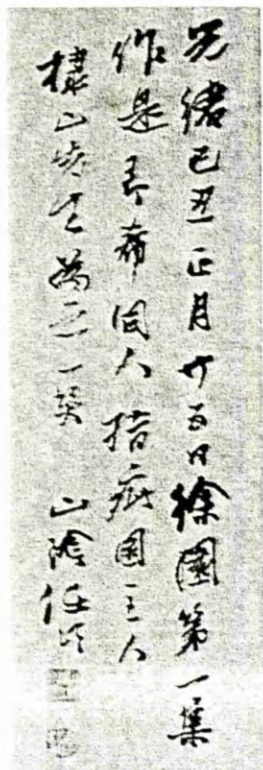 光緒己丑正月廿五日徐園第一集
作是弄希同人指疵園主人
棣山先生為之一笑 山陰任頤